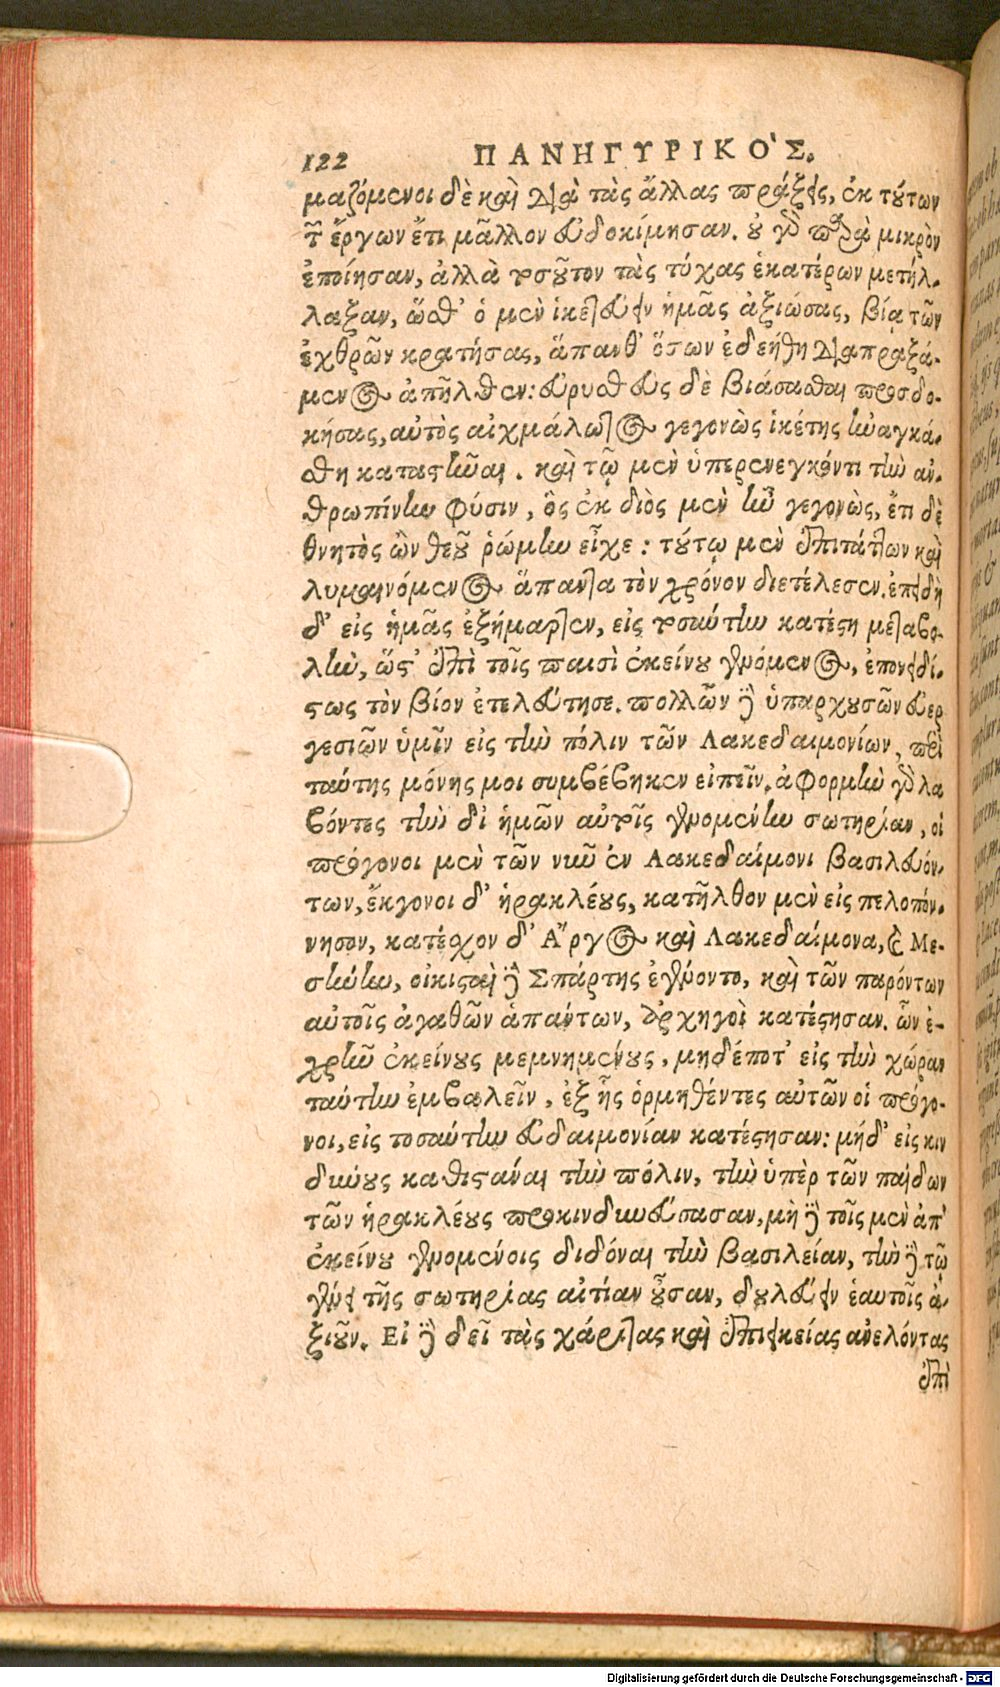 122 ΠΑΝΗΓΥΡΙΚΟ΄Σ.
μαζόμενοι δὲ καὶ διὰ τὰς ἄλλας πράξεις, ἐκ τούτων
τῶν ἔργων ἔτι μᾶλλον εὐδοκίμησαν. οὐ γὰρ παρὰ μικρὸν
ἐποίησαν, ἀλλὰ τοσοῦτον τὰς τύχας ἑκατέρων μετήλ-
λαξαν, ὥσθ' ὁ μὲν ἱκετεύειν ἡμᾶς ἀξιώσας, βίᾳ τῶν
ἐχθρῶν κρατήσας, ἅπανθ' ὅσων ἐδεήθη διαπραξά-
μενος ἀπῆλθεν: εὐρυσθεὺς δὲ βιάσασθαι προσδο-
κήσας, αὐτὸς αἰχμάλωτος γεγονὼς ἱκέτης ἠναγκά-
σθη καταστῆναι. καὶ τῷ μὲν ὑπερενεγκόντι τὴν ἀν-
θρωπίνην φύσιν, ὃς ἐκ διὸς μὲν ἦν γεγονὼς, ἔτι δὲ
θνητὸς ὢν θεοῦ ῥώμην εἶχε: τούτῳ μὲν ἐπιτάττων καὶ
λυμαινόμενος ἅπαντα τὸν χρόνον διετέλεσεν. ἐπειδὴ
δ' εἰς ἡμᾶς ἐξήμαρτεν, εἰς τοσαύτην κατέστη μεταβο-
λὴν, ὥστ' ἐπὶ τοῖς παισὶ ἐκείνου γενόμενος, ἐπονειδί-
στως τὸν βίον ἐτελεύτησε. πολλῶν δὲ ὑπαρχουσῶν εὐερ
γεσιῶν ὑμῖν εἰς τὴν πόλιν τῶν Λακεδαιμονίων, περὶ
ταύτης μόνης μοι συμβέβηκεν εἰπεῖν. ἀφορμὴν γὰρ λα
βόντες τὴν δι' ἡμῶν αὐτοῖς γενομένην σωτηρίαν, οἱ
πρόγονοι μὲν τῶν νῦν ἐν Λακεδαίμονι βασιλευόν-
των, ἔκγονοι δ' ἡρακλέους, κατῆλθον μὲν εἰς πελοπόν-
νησον, κατέσχον δ' Ἄργος καὶ Λακεδαίμονα, καὶ Μεσ-
σήνην, οἰκισταὶ δὲ Σπάρτης ἐγένοντο, καὶ τῶν παρόντων
αὐτοῖς ἀγαθῶν ἁπάντων, ἀρχηγοὶ κατέστησαν. ὧν ἐ-
χρῆν ἐκείνους μεμνημένους, μηδέποτ' εἰς τὴν χώραν
ταύτην ἐμβαλεῖν, ἐξ ἧς ὁρμηθέντες αὐτῶν οἱ πρόγο-
νοι, εἰς τοσαύτην εὐδαιμονίαν κατέστησαν: μήδ' εἰς κιν
δύνους καθιστάναι τὴν πόλιν, τὴν ὑπὲρ τῶν παίδων
τῶν ἡρακλέους προκινδυνεύσασαν, μὴ δὲ τοῖς μὲν ἀπ'
ἐκείνου γενομένοις διδόναι τὴν βασιλείαν, τὴν δὲ τῷ
γένει τῆς σωτηρίας αἰτίαν οὖσαν, δουλεύειν ἑαυτοῖς ἀ-
ξιοῦν. Εἰ δὲ δεῖ τὰς χάριτας καὶ ἐπιεικείας ἀνελόντας
ἐπὶ
Digitalisierung gefördert durch die Deutsche Forschungsgemeinschaft - DFG